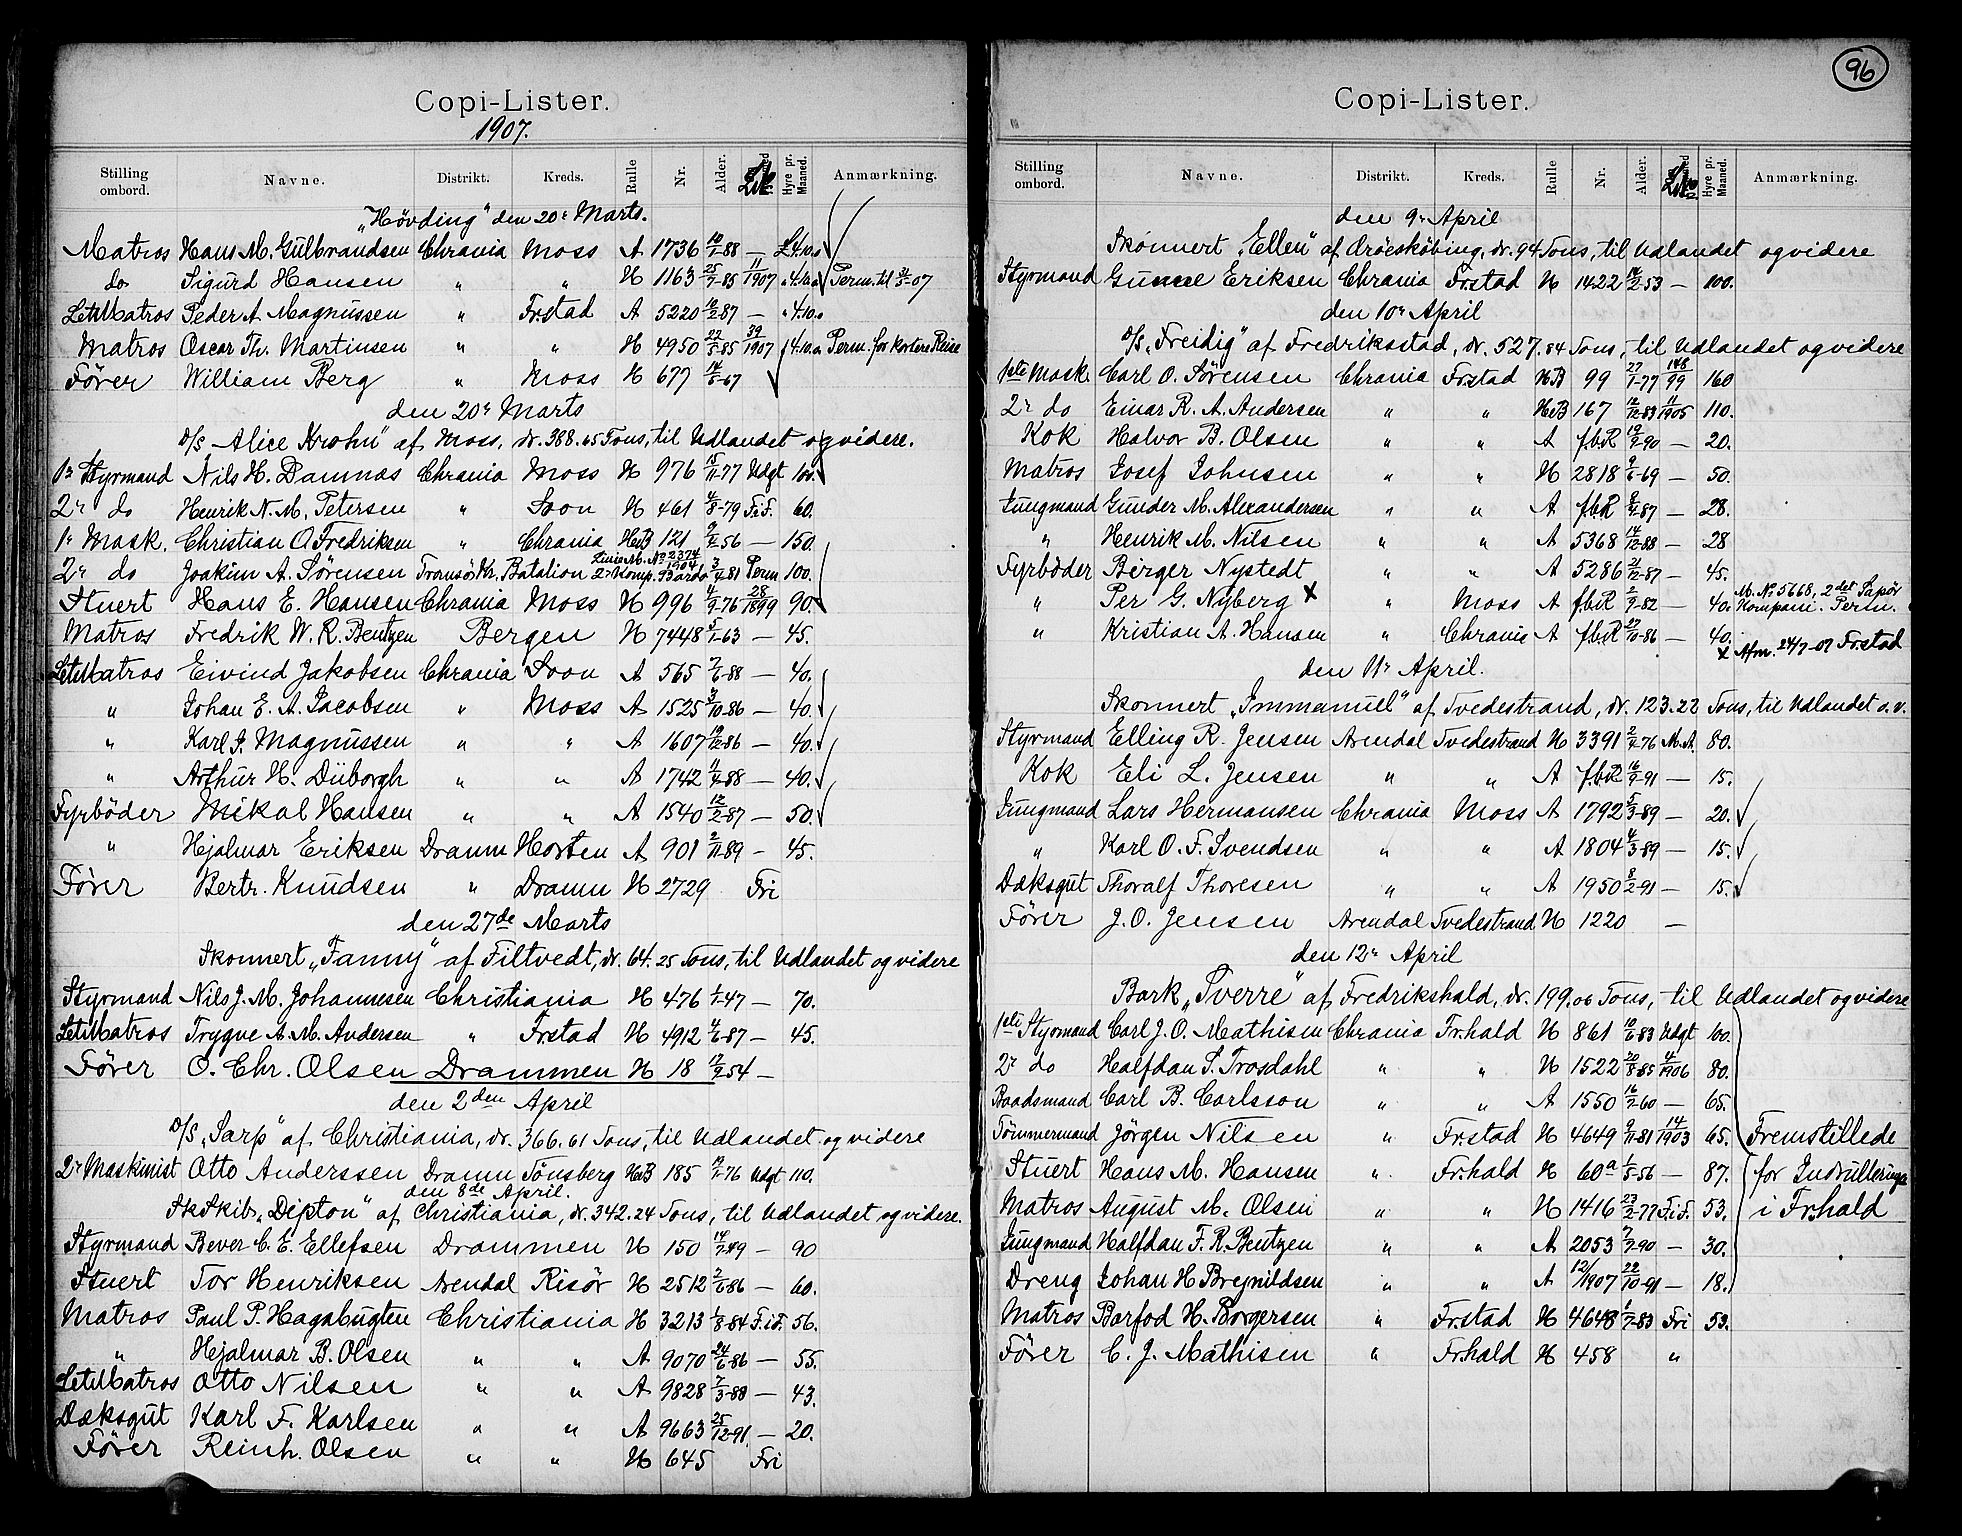 Copi-Lister.
1907.
Stilling ombord. Navne. Distrikt. Kreds. Rulle Nr. Alder. Hyre pr. Maaned. Anmærkning.
"Hövding" den 20de Marts.
Matros Hans M. Gulbrandsen Chrania Moss A 1736 10/1-88 — £4.10.0
do Sigurd Hansen " " H 1163 25/7-85 11/1907 " 4.10.0 Perm. til -07
LetMatros Peder A. Magnussen " Fr.stad A 5220 -87 — " 4.10.0
Matros Oscar Th. Martinsen " " H 4950 22/5-85 39/1907 4.10.0 Perm. for kortere Reise
Förer William Berg " Moss H 677 14/6-67
den 20de Marts
D/S "Alice Krohn" af Moss, dr. 388.65 Tons, til Udlandet og videre.
1ste Styrmand Nils H. Damnæs Chrania Moss H 976 15/11-77 Udgt 100.
2den do Henrik N. M. Petersen " Soon H 461 4/8-79 F.i.F. 60.
1ste Mask. Christian O Fredriksen " Chrania HB 121 -56 — 150.
Linie M. No 2374/1904
2den do Joakim A. Sörensen Tromsö Kr. Batalion 2de Komp. Bardo 3/4-81 Perm 100.
Stuert Hans E. Hansen Chrania Moss H 996 4/9-76 28/1899 90.
Matros Fredrik W. R. Bentzen Bergen H 7448 5/1-63 — 45.
LetMatros Eivind Jakobsen Chrania Soon A 565 7/6-88 — 40.
" Johan E. A. Jacobsen " Moss A 1525 3/10-86 — 40.
" Karl J. Magnussen " " A 1607 19/12-86 — 40.
" Arthur H. Düborgh " " A 1742 -88 — 40.
Fyrböder Mikal Hansen " " A 1540 12/2-87 — 50.
" Hjalmar Eriksen Dramn Horten A 901 2/11-89 — 45.
Förer Bertr. Knudsen " Dramn H 2729 Fri
den 27de Marts
Skonnert "Fanny" af Filtvedt, dr. 64.25 Tons, til Udlandet og videre
Styrmand Nils J. M. Johannesen Christiania H 476 1/1-47 — 70.
LetMatros Trygve A. M. Andersen " Fr.stad H 4912 4/6-87 — 45.
Förer O. Chr. Olsen Drammen H 18 -54 —
den 2den April
D/S "Sarp" af Christiania, dr. 366.61 Tons, til Udlandet og videre
2den Maskinist Otto Anderssen Dramn Tönsberg HB 185 -76 Udgt 110.
den 8de April.
Sk.Skib. "Dipton" af Christiania, dr. 342.24 Tons, til Udlandet og videre.
Styrmand Bever C. E. Ellefsen Drammen H 150 14/7-49 — 90
Stuert Tor Henriksen Arendal Risör H 2512 2/6-86 — 60.
Matros Paul P. Hagabugten Christiania H 3213 1/8-84 F.i.F. 56.
" Hjalmar B. Olsen " " A 9070 24/6-86 — 55.
LetMatros Otto Nilsen " " A 9828 7/3-88 — 43.
Dæksgut Karl F. Karlsen " " A 9663 25/12-91 — 20.
Förer Reinh. Olsen " " H 645 Fri
96
Copi-Lister.
Stilling ombord. Navne. Distrikt. Kreds. Rulle Nr. Alder. Hyre pr. Maaned. Anmærkning.
den 9de April
Skonnert "Ellen" af Æröesköbing, dr. 94 Tons, til Udlandet og videre
Styrmand Eriksen Chrania Frstad H 1422 14/2-53 — 100.
den 10de April
D/S "Freidig" af Fredriksstad, dr. 527.84 Tons, til Udlandet og videre
1ste Mask. Carl O. Sörensen Chrania Frstad HB 99 27/1-77 148/99 160
2den do Einar R. A. Andersen " " HB 167 12/12-83 11/1905 110.
Kok Halvor B. Olsen " " A f.b.R 19/9-90 — 20.
Matros Josef Johnsen " " H 2818 9/6-69 — 50.
Jungmand Gunder M. Alexandersen " " A f.b.R -87 — 28.
" Henrik M. Nilsen " " A 5368 14/12-88 — 28
Fyrböder Birger Nystedt " " A 5286 21/12-87 — 45.
" Per G. Nyberg x Moss A f.b.R 2/9-82 — 40. M. No 5668, 2det Sapör Kompani. Perm.
" Kristian A. Hansen " Chrania A f.b.R 27/10-86 — 40.
x Afm. 24/7-07 Fr.stad
den 11te April.
Skonnert "Immanuel" af Tvedestrand, dr. 123.22 Tons, til Udlandet o.v.
Styrmand Elling R. Jensen Arendal Tvedestrand H 3391 -76 M.A. 80.
Kok Eli L. Jensen " " A f.b.R 16/9-91 — 15.
Jungmand Lars Hermansen Chrania Moss A 1792 5/3-89 — 20.
" Karl O. F. Svendsen " " A 1804 4/3-89 — 15.
Dæksgut Thoralf Thoresen " " A 1950 8/2-91 — 15.
Förer J. O. Jensen Arendal Tvedestrand H 1220 —
den 12te April
Bark "Sverre" af Fredrikshald, dr. 199.06 Tons, til Udlandet og videre
1ste Styrmand Carl J. O. Mathisen Chrania Fr.hald H 861 10/6-83 Udgt 100.
2den do Halfdan S. Trosdahl " " H 1522 20/8-85 4/1906 80.
Baadsmand Carl B. Carlsson " " A 1550 16/2-60 — 65.
Tömmermand Jörgen Nilsen " Fr.stad H 4649 9/11-81 14/1903 65. Fremstillede
Stuert Hans M. Hansen " Fr.hald H 60a 1/5-56 — 87. for Indrulleringen
Matros August M. Olsen " " H 1416 23/2-77 F.i.F. 53. i Fr.hald
Jungmand Halfdan F. R. Bentzen " " A 2053 7/9-90 — 30.
Dreng Johan H Brynildsen " " A 12/1907 22/10-91 — 18.
Matros Barfod H. Borgersen " Fr.stad H 4648 1/7-83 Fri 53.
Förer C. J. Mathisen " Fr.hald H 458 "